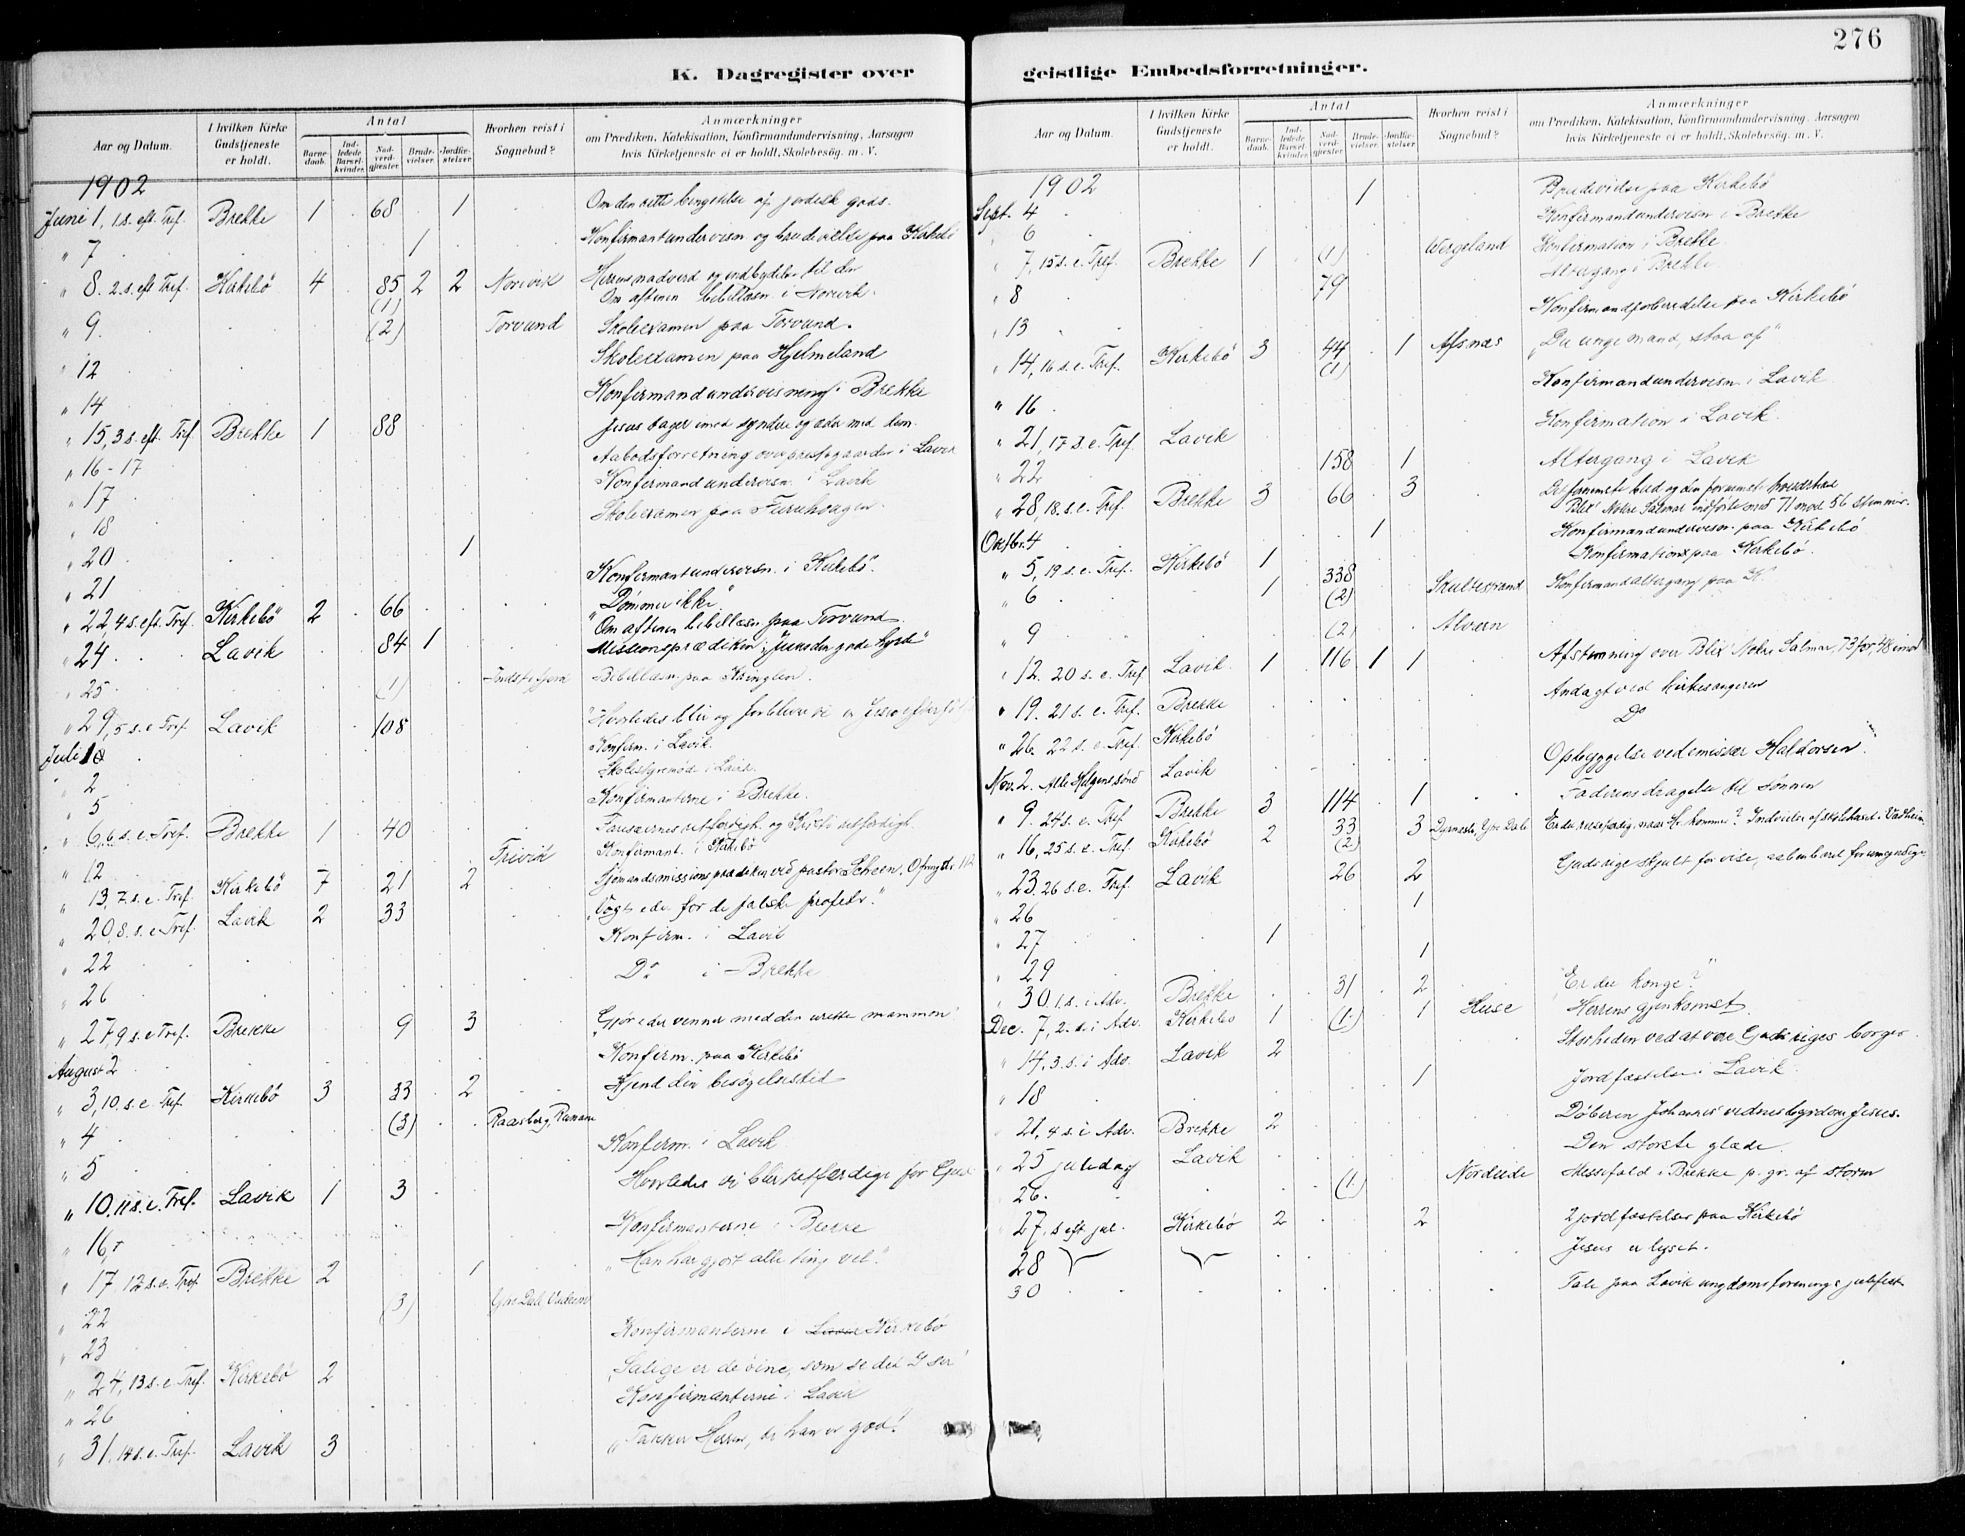 276
K. Dagregister over geistlige Embedsforretninger.
Aar og Datum. I hvilken Kirke Gudstjeneste er holdt. Antal Barnedaab. Indledede Barselkvinder. Nadverdgjester. Brudevielser. Jordfæstelser. Hvorhen reist i Sognebud? Anmærkninger om Prædiken, Katekisation, Konfirmandundervisning, Aarsagen hvis Kirketjeneste ei er holdt, Skolebesøg. m. V.
1902
June 1, 1.s. eft. Tref. Brekke 1 68 1 Om den rette af jordisk gods.
" 7 1 Konfirmantundervisn. og brudevielse paa Kirkebö
" 8. 2.s. eft Tref. Kirkebö 4 85 2 2 Norevik Herrens nadverd og indbydelse til den
(1) Om aftenen bibellæsn. i Norevik.
" 9. (2) Torvund Skoleexamen paa Torvund.
" 12 Skoleexamen paa Hjelmeland
" 14 Konfirmandundervisning i Brekke
" 15, 3 s. eft. Tref. Brekke 1 88 Jesus tager imod syndere og æder med dem.
" 16-17 Aabodsforretning over prestegaarden i Lavik
" 17 Konfirmandundervisn. i Lavik
" 18 Skoleexamen paa Furuhaugen.
" 20 1
" 21 Konfirmantundervisn. i Kirkebö.
" 22, 4 s. eft. Tref. Kirkebö 2 66 "Dömmer ikke"
Om aftenen bibellæsn paa Torvund
" 24 Lavik 84 1 Missionsprædiken: "Jesus den gode hyrde"
" 25 (1) Bibellæsn. paa Kringlen.
" 29, 5 s. e Tref. Lavik 108 "Hvorledes blir og forblive vi
Juli 1 Konfirm. i Lavik.
" 2 Skolestyremöde i Lavik.
" 5 Konfirmanterne i Brekke.
" 6, 6 s. e. Tref. Brekke 1 40 Farisæernes retfærdigh. og Kristi retfærdigh
" 12 Trivik Konfirmant. i Kirkebö
" 13, 7. s. e. Tref. Kirkebö 7 21 2 Sjömandsmissionsprædiken ved pastor Scheen.
" 20, 8. s. e Tref. Lavik 2 33 "Vogt eder for de falske profeter."
" 22 Konfirm. i Lavik
" 26 Do i Brekke
" 27 9 s. e Tref. Brekke 9 3 Gjör eder venner med den urette mammon
August 2 Konfirm. paa Kirkebö
" 3, 10. s. e Tref. Kirkebö 3 33 2 Kjend din besögelsestid
" 4 (3) Raasberg,
" 5 Konfirm. i Lavik
" 10. 11 s. e. Tref. Lavik 1 3 Hvorledes vi blir retfærdige for Gud
" 16, Konfirmanterne i Brekke
" 17, 12 s. e. Tref. Brekke 2 1 "Han har gjort alle ting vel."
" 22 (3) Ytre Dale Vadeim
" 23 Konfirmanterne i Kirkebö
" 24, 13 s. e Tref. Kirkebö 2 "Salige er de öine, som se det I ser"
" 26 Konfirmanterne i Lavik
" 31, 14 s. e. Tref. Lavik 3 "Takker Herren, ti han er god!
Aar og Datum. I hvilken Kirke Gudstjeneste er holdt. Antal Barnedaab. Indledede Barselkvinder. Nadverdgjester. Brudevielser. Jordfæstelser. Hvorhen reist i Sognebud? Anmærkninger om Prædiken, Katekisation, Konfirmandundervisning, Aarsagen hvis Kirketjeneste ei er holdt, Skolebesøg. m. V.
1902
Sept. 4 1 Brudevielse paa Kirkebö
" 6 Konfirmandundervisn i Brekke
" 7, 15 s. e. Tref. Brekke 1 (1) Wergeland Konfirmation i Brekke
" 8 79 Altergang i Brekke
" 13 Konfirmandforberedelse paa Kirkebö
" 14, 16 s. e. Tref. Kirkebö 3 44 1 Afsnæs "Du unge mand, staa op"
(1)
" 16 Konfirmandundervisn. i Lavik
" 21, 17 s. e. Tref. Lavik Konfirmation i Lavik.
" 22 158 1 Altergang i Lavik
" 28, 18. s. e. Tref. Brekke 3 66 3 Det fornemste bud og den fornemste
Blix' Nokre Salmar indförte med 71 mod 56 stemmer.
Oktbr. 4 1 Konfirmandundervisn. paa Kirkebö
" 5, 19 s. e. Tref. Kirkebö 1 Konfirmation paa Kirkebö.
" 6 1 338 (2) Skultestrand Konfirmandaltergang paa K.
" 9 (2) Alværn
" 12. 20 s. e. Tref Lavik 1 116 1 1 Afstemning over Blix' Nokre Salmar, 73 for, 48 imod
" 19. 21 s. e. Tref. Brekke Andagt ved kirkesangeren
" 26. 22 s. e. Tref. Kirkebö Do
Nov. 2. Alle Helgens sönd Lavik Opbyggelse ved emissær Haldorsen
" 9. 24 s. e. Tref Brekke 3 114 1 Faderens dragelse til Sönnen
" 16, 25 s. e. Tref. Kirkebö 2 33 (2) 3 Ytre Dale Er du reisefærdig, naar kommer? Indvielse af skolehuset i Vadheim
" 23, 26 s. e. Tref. Lavik 26 2 Guds rige skjult for vise, aabenbaret for umyndige.
" 26 1
" 27 1
" 29 1
" 30, 1. s. i Adv. Brekke 31 2 "Er du konge?"
Dec. 7, 2. s. i Adv. Kirkebö 1 (1) 1 Huse Herrens gjenkomst.
" 14, 3. s. i Adv. Lavik 2 Storheden ved at være Gudsriges borger
" 18 1 Jordfæstelse i Lavik.
" 21, 4 s. i Adv. Brekke 2 Döberen Johannes' vidnesbyrd om Jesus.
" 25 juledag Lavik Den störste glæde.
" 26. (1) Nordeide Messefald i Brekke p. gr. af storm
" 27, s. eft jul. Kirkebö 2 2 2 jordfæstelser paa Kirkebö
28 Jesus er lyset.
30 Tale paa Lavik ungdomsforenings julefest